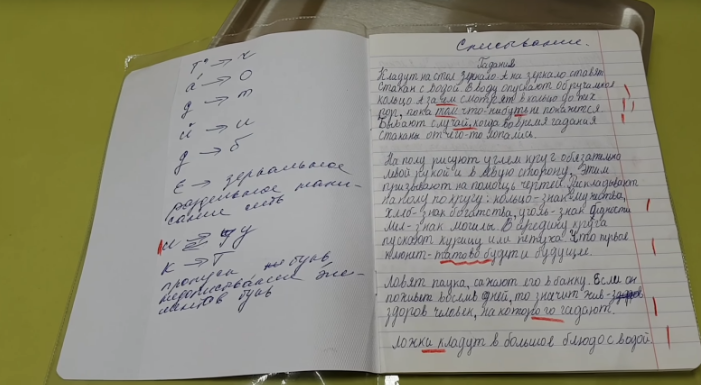 т → х
а → о
д → т
й → и
д → б
Е → зеркальное
раздельное напи-
сание
и → у
к → Т
пропуск букв,
недописывание эле-
ментов букв
Списывание.
Гадания
Кладут на стол зеркало. А на зеркало ставят
стакан с водой. В воду опускают обручальное
кольцо а зачем смотрят в кольцо до тех
пор, пока там что-нибудь не покажется
Бывают случай, когда во время гадания
стаканы от чего-то лопались.
На полу рисуют углем круг обязательно
левой рукой и в левую сторону, Этим
призывают на помощь чертей. Раскладывают
на полу по кругу: кольцо-знак
хлеб-знак богатства, уголь-знак бедности
мел-знак могилы. В середину круга
пускают курицу или петуха. Что первое
клюнит- будут и будущие.
Ловят паука, сажают его в банку. Если он
поживет дней, то значит жив-
здоров человек, на которого гадают.
Ложки кладут в большое блюдо с водой